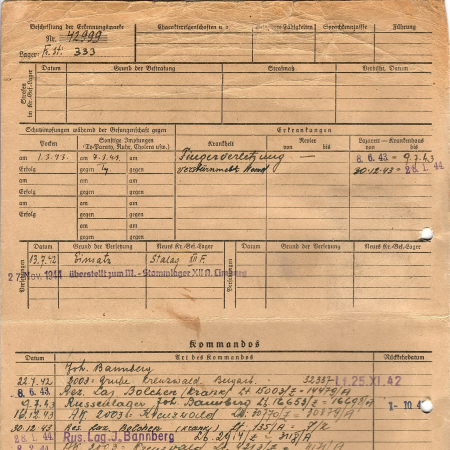 Beschriftung der Erkennungsmarke
Nr. 42999
Lager: Fr. St. 333
Charaktereigenschaften u. a.
Fähigkeiten
Sprachkenntnisse
Führung
Strafen in Kr.-Gef.-Lager
Datum Grund der Bestrafung Strafmaß Verbüßt, Datum
Schutzimpfungen während der Gefangenschaft gegen
Erkrankungen
Pocken
Sonstige Impfungen (Ty-Paraty, Ruhr, Cholera usw.)
Krankheit
Revier von — bis
Lazarett — Krankenhaus von bis
am 1.3.43. am 7.3.43. Fingerverletzung — 8. 6. 43 9.7.43
Erfolg gegen Ty Hand 30.12.43 28. 1. 44
am am
Erfolg gegen
am am
Erfolg gegen
am am
Erfolg gegen
Versetzungen
Datum Grund der Versetzung Neues Kr.-Gef.-Lager
Datum Grund der Versetzung Neues Kr.-Gef.-Lager
13.7.42 Einsatz Stalag XII F.
27. Nov. 1944 überstellt zum M.-Stammlager XII A. Limburg
Kommandos
Datum Art des Kommandos Rückkehrdatum
Joh. Bannberg
22.7.42 2003: Grube Kreuzwald 25. XI. 42
8. 6. 43. Res. Laz. Bolchen (Krank) Lt. 15003/Z = 14479/A
9.7.43 Russenlager Joh. Bannberg Lt. 16653/Z 1-10 4
16.12.43 A.K. 2003: Kreuzwald
30.12.43 Res. Laz. Bolchen (krank) Lt. 135/A
28. 1. 44 Rus. Lag. J. Bannberg Lt. 2914/Z = 3115/A
A.K. 2003: Kreuzwald